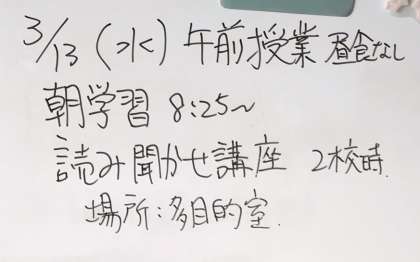 3/13 (水) 午前授業 昼食なし
朝学習 8:25~
読み聞かせ講座 2校時.
場所:多目的室.